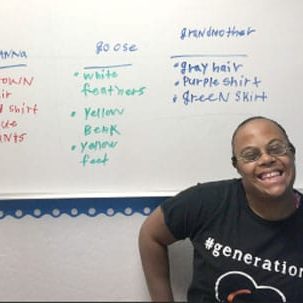 ANNA
OWN
ir
d shirt
ue
ANTS
goose
• white
feathers
• yellow
Beak
• yellow
feet
grandmother
• gray hair
• Purple shirt
• GreeN SKirt
#generation